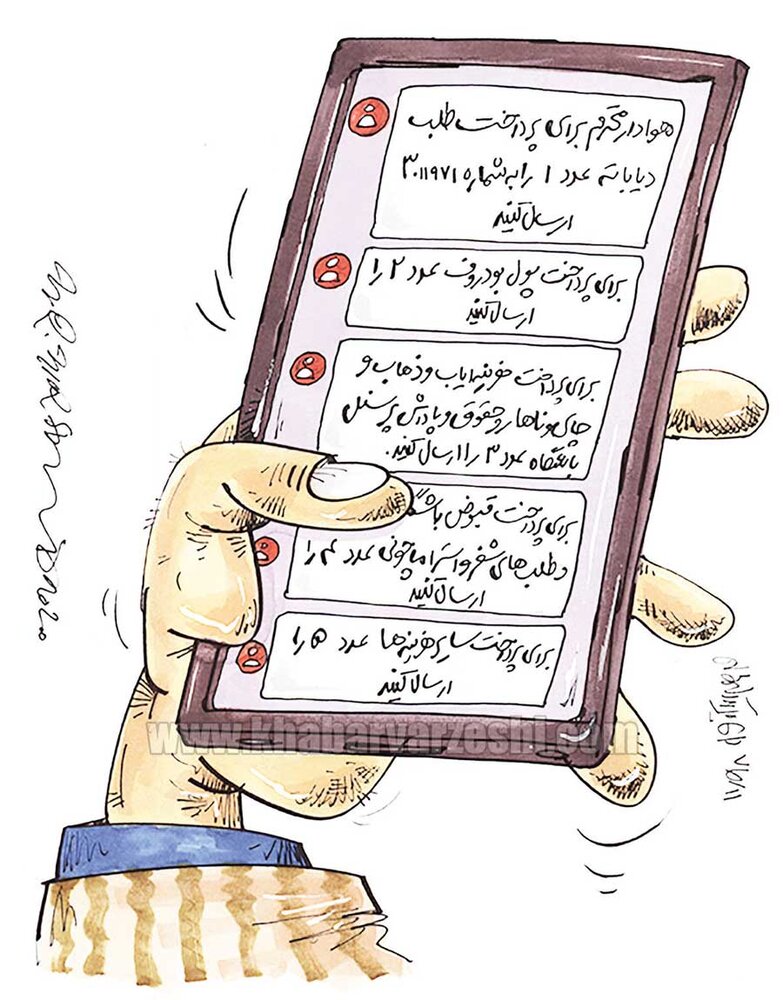 هوادار محترم برای پرداخت طلب
دیاباته عدد ۱ را به شماره ۳۰۱۱۹۷۱
ارسال کنید
برای پرداخت پول بودروف عدد ۲ را
ارسال کنید
برای پرداخت هزینه ایاب و ذهاب و
چای مهمانها و حقوق و پاداش پرسنل
باشگاه عدد ۳ را ارسال کنید.
برای پرداخت قبوض باشگاه
و طلب‌های شفر و استراماچونی عدد ۴ را
ارسال کنید
برای پرداخت سایر هزینه‌ها عدد ۵ را
ارسال کنید
www.khabarvarzeshi.com